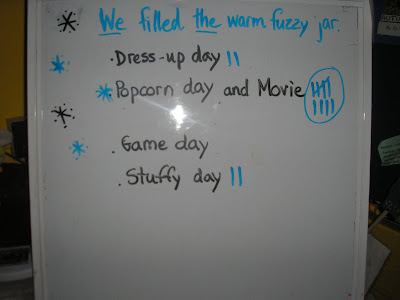 We filled the warm fuzzy jar.
· Dress-up day ||
· Popcorn day and Movie |||| ||||
· Game day
· Stuffy day ||